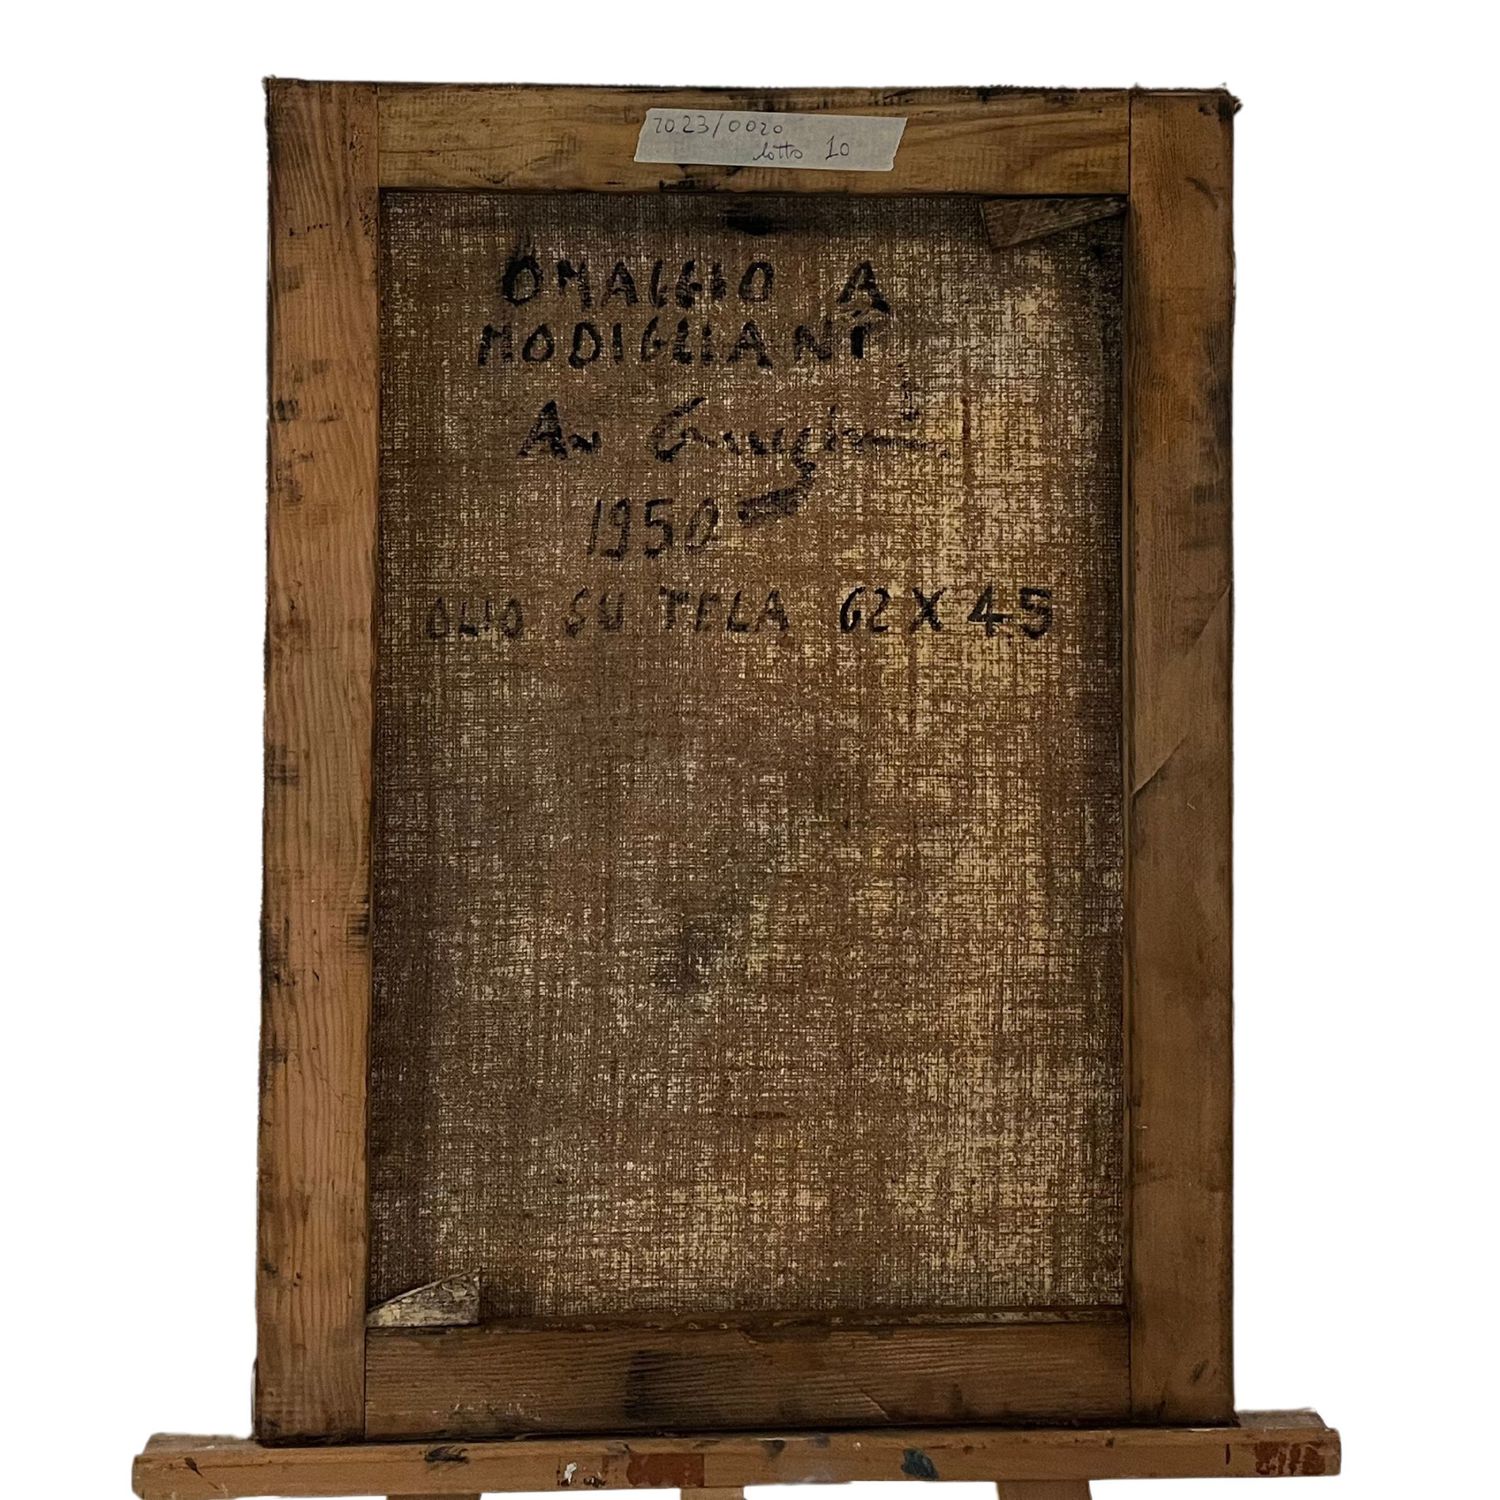 2023/0020
lotto 10
OMAGGIO A
MODIGLIANI
1950
OLIO SU TELA 62 X 45